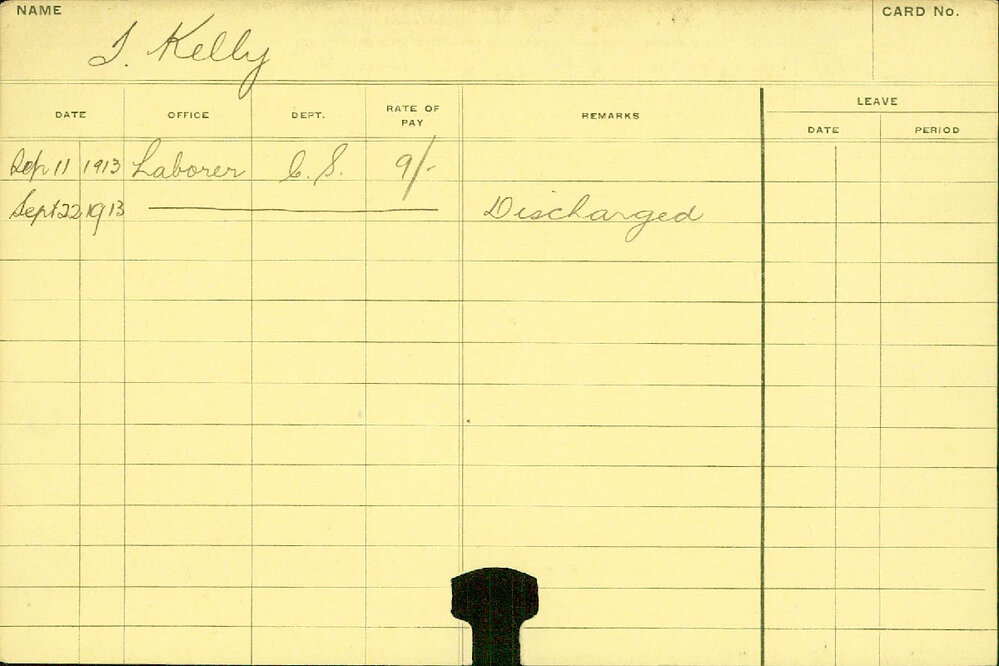 NAME CARD No.
J. Kelly
DATE OFFICE DEPT. RATE OF PAY REMARKS LEAVE
DATE PERIOD
Sep 11 1913 Laborer C. S. 9/-
Sept 22 1913 Discharged